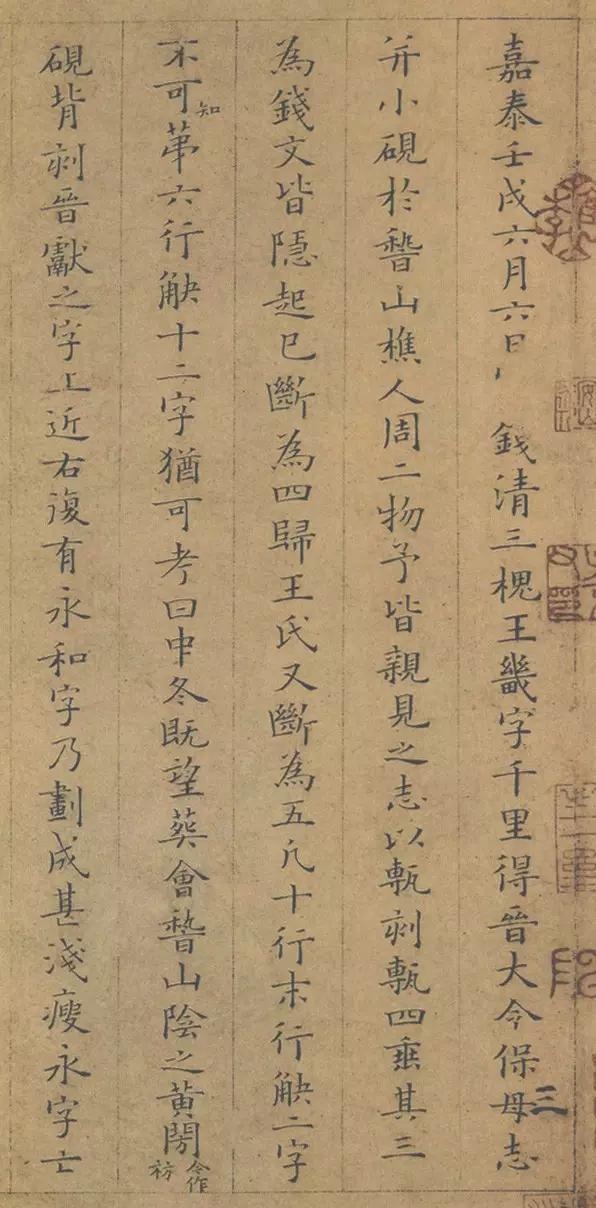 嘉泰壬戌六月六日錢清三槐王畿字千里得晉大令保母志
并小硯於嵇山樵人周二物予皆親見之志以甎刻甎四垂其三
為錢文皆隱起已斷為四歸王氏又斷為五凡十行末行觖二字
不可知苐六行觖十二字猶可考曰中冬既望葬會嵇山陰之黃閍合作祊
硯背刻晉獻之字上近右復有永和字乃劃成甚淺瘦永字亡
三